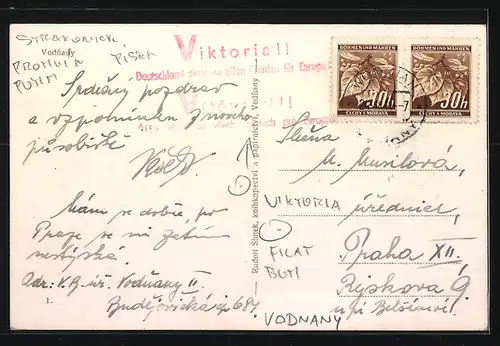 STRAKONICE
Vodňany
PROTIVÍN
PÍSEK
PUTIM
Viktoria!!
Deutschland siegt an allen Fronten für Europa
Viktoria!!
BÖHMEN UND MÄHREN
30h
ČECHY A MORAVA
BÖHMEN UND MÄHREN
30h
ČECHY A MORAVA
Srdečný pozdrav
a vzpomínku z nového
působiště
Mám se dobře, po
Praze se mi zatím
nestýská.
Adr: V.B. úř. Vodňany II.
Budějovická čp 687.
1.
Rudolf Šimek, knihkupectví a papírnictví, Vodňany
Slečna
M. Musilová,
VIKTORIA
úřednice,
FILAT
BUTI
Praha XII.
Ryskova 9
VODNANY